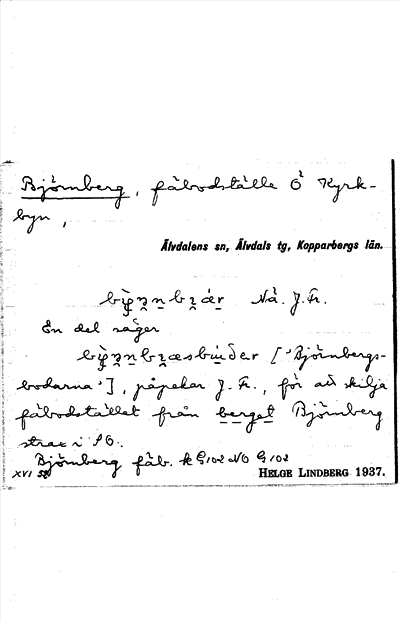 Björnberg, fäbodställe Ö Kyrk-
byn,
Älvdalens sn, Älvdals tg, Kopparbergs län.
Nå. J. Fr.
En del säger
['Björnbergs-
bodarna'], påpekar J. Fr., för att skilja
fäbodstället från berget Björnberg
strax i SO.
Björnberg fäb. k G102 NO G102
XVI 58 HELGE LINDBERG 1937.